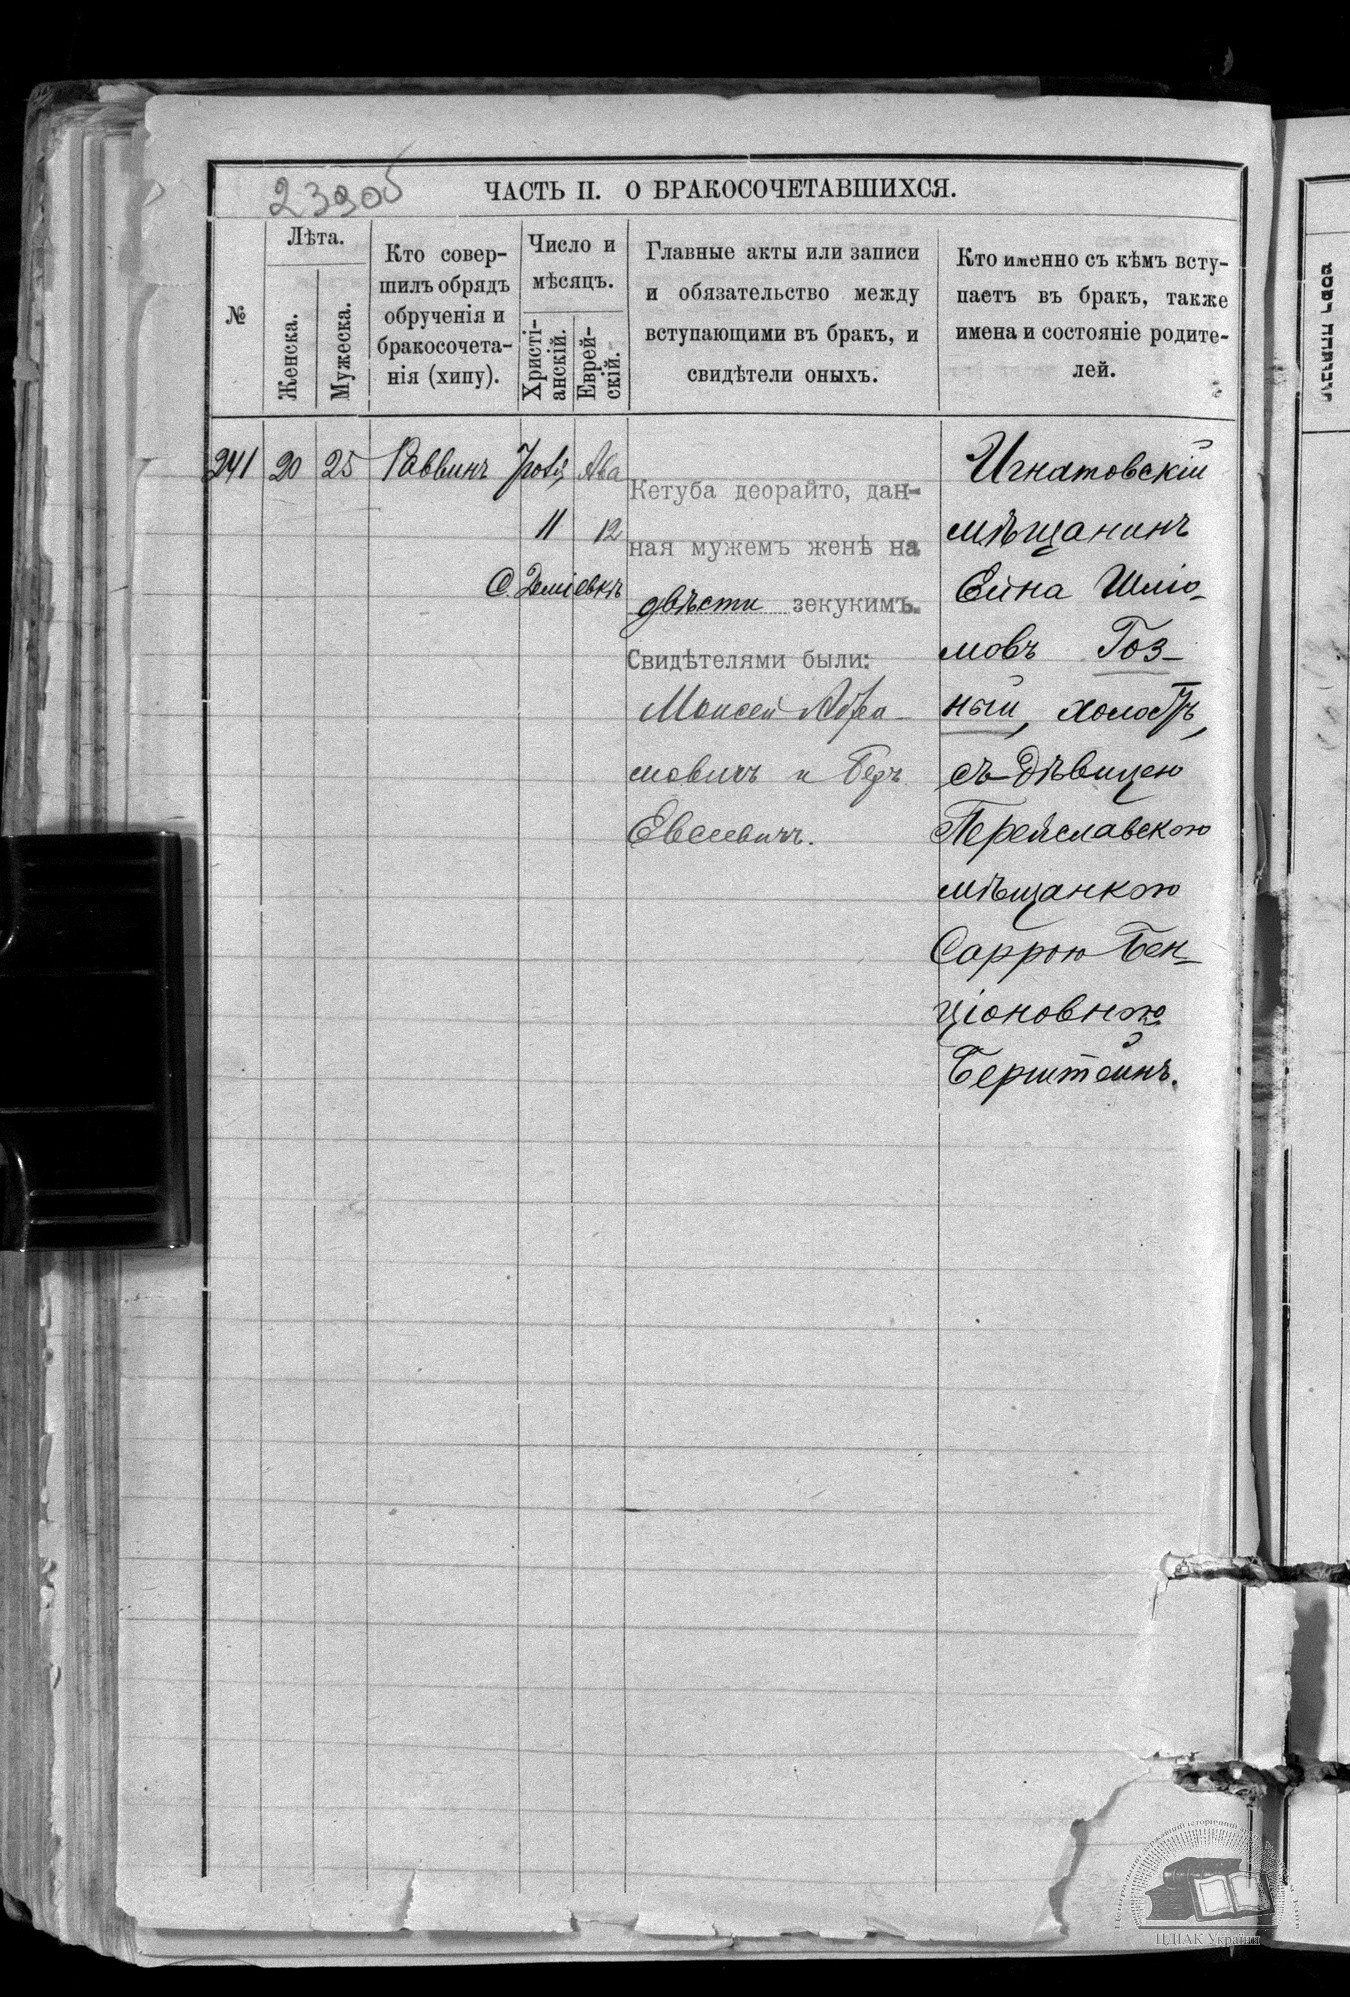 239об
ЧАСТЬ II. О БРАКОСОЧЕТАВШИХСЯ.
№
Лѣта.
Женска.
Мужеска.
Кто совер-
шилъ обрядъ
обрученія и
бракосочета-
нія (хипу).
Число и
мѣсяцъ.
Христі-
анскій.
Еврей-
скій.
Главные акты или записи
и обязательство между
вступающими въ бракъ, и
свидѣтели оныхъ.
Кто именно съ кѣмъ всту-
паетъ въ бракъ, также
имена и состояніе родите-
лей.
241
20
25
Раввинъ
11
Ава
12
С. Деміевкѣ
Кетуба деорайто, дан-
ная мужемъ женѣ на
двѣсти зекукимъ.
Свидѣтелями были:
Моисей Абра-
мовичъ и Беръ
Евсеевичъ.
Игнатовскій
мѣщанинъ
Ейна Шліо-
мовъ Гоз-
ный, холостъ,
съ дѣвицею
Переяславскою
мѣщанкою
Саррою Бен-
ціоновною
Берштейнъ.
ЦДІАК України